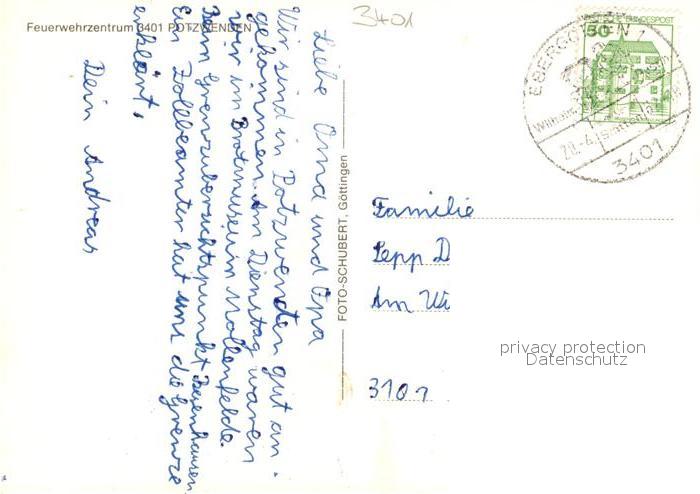 Feuerwehrzentrum 3401 POTZWENDEN
3401
Liebe Oma und Opa
Wir sind in Potzwenden gut an-
gekommen. Am Dienstag waren
wir im Brotmuseum Mollenfelde.
Beim Grenzübersichtspunkt Besenhausen
Ein Zollbeamter hat uns die Grenze
erklärt.
Dein Andreas
FOTO-SCHUBERT, Göttingen
EBERGÖTZEN 1
3401
50
DEUTSCHE BUNDESPOST
Familie
Sepp D
Am Wi
3101
privacy protection
Datenschutz